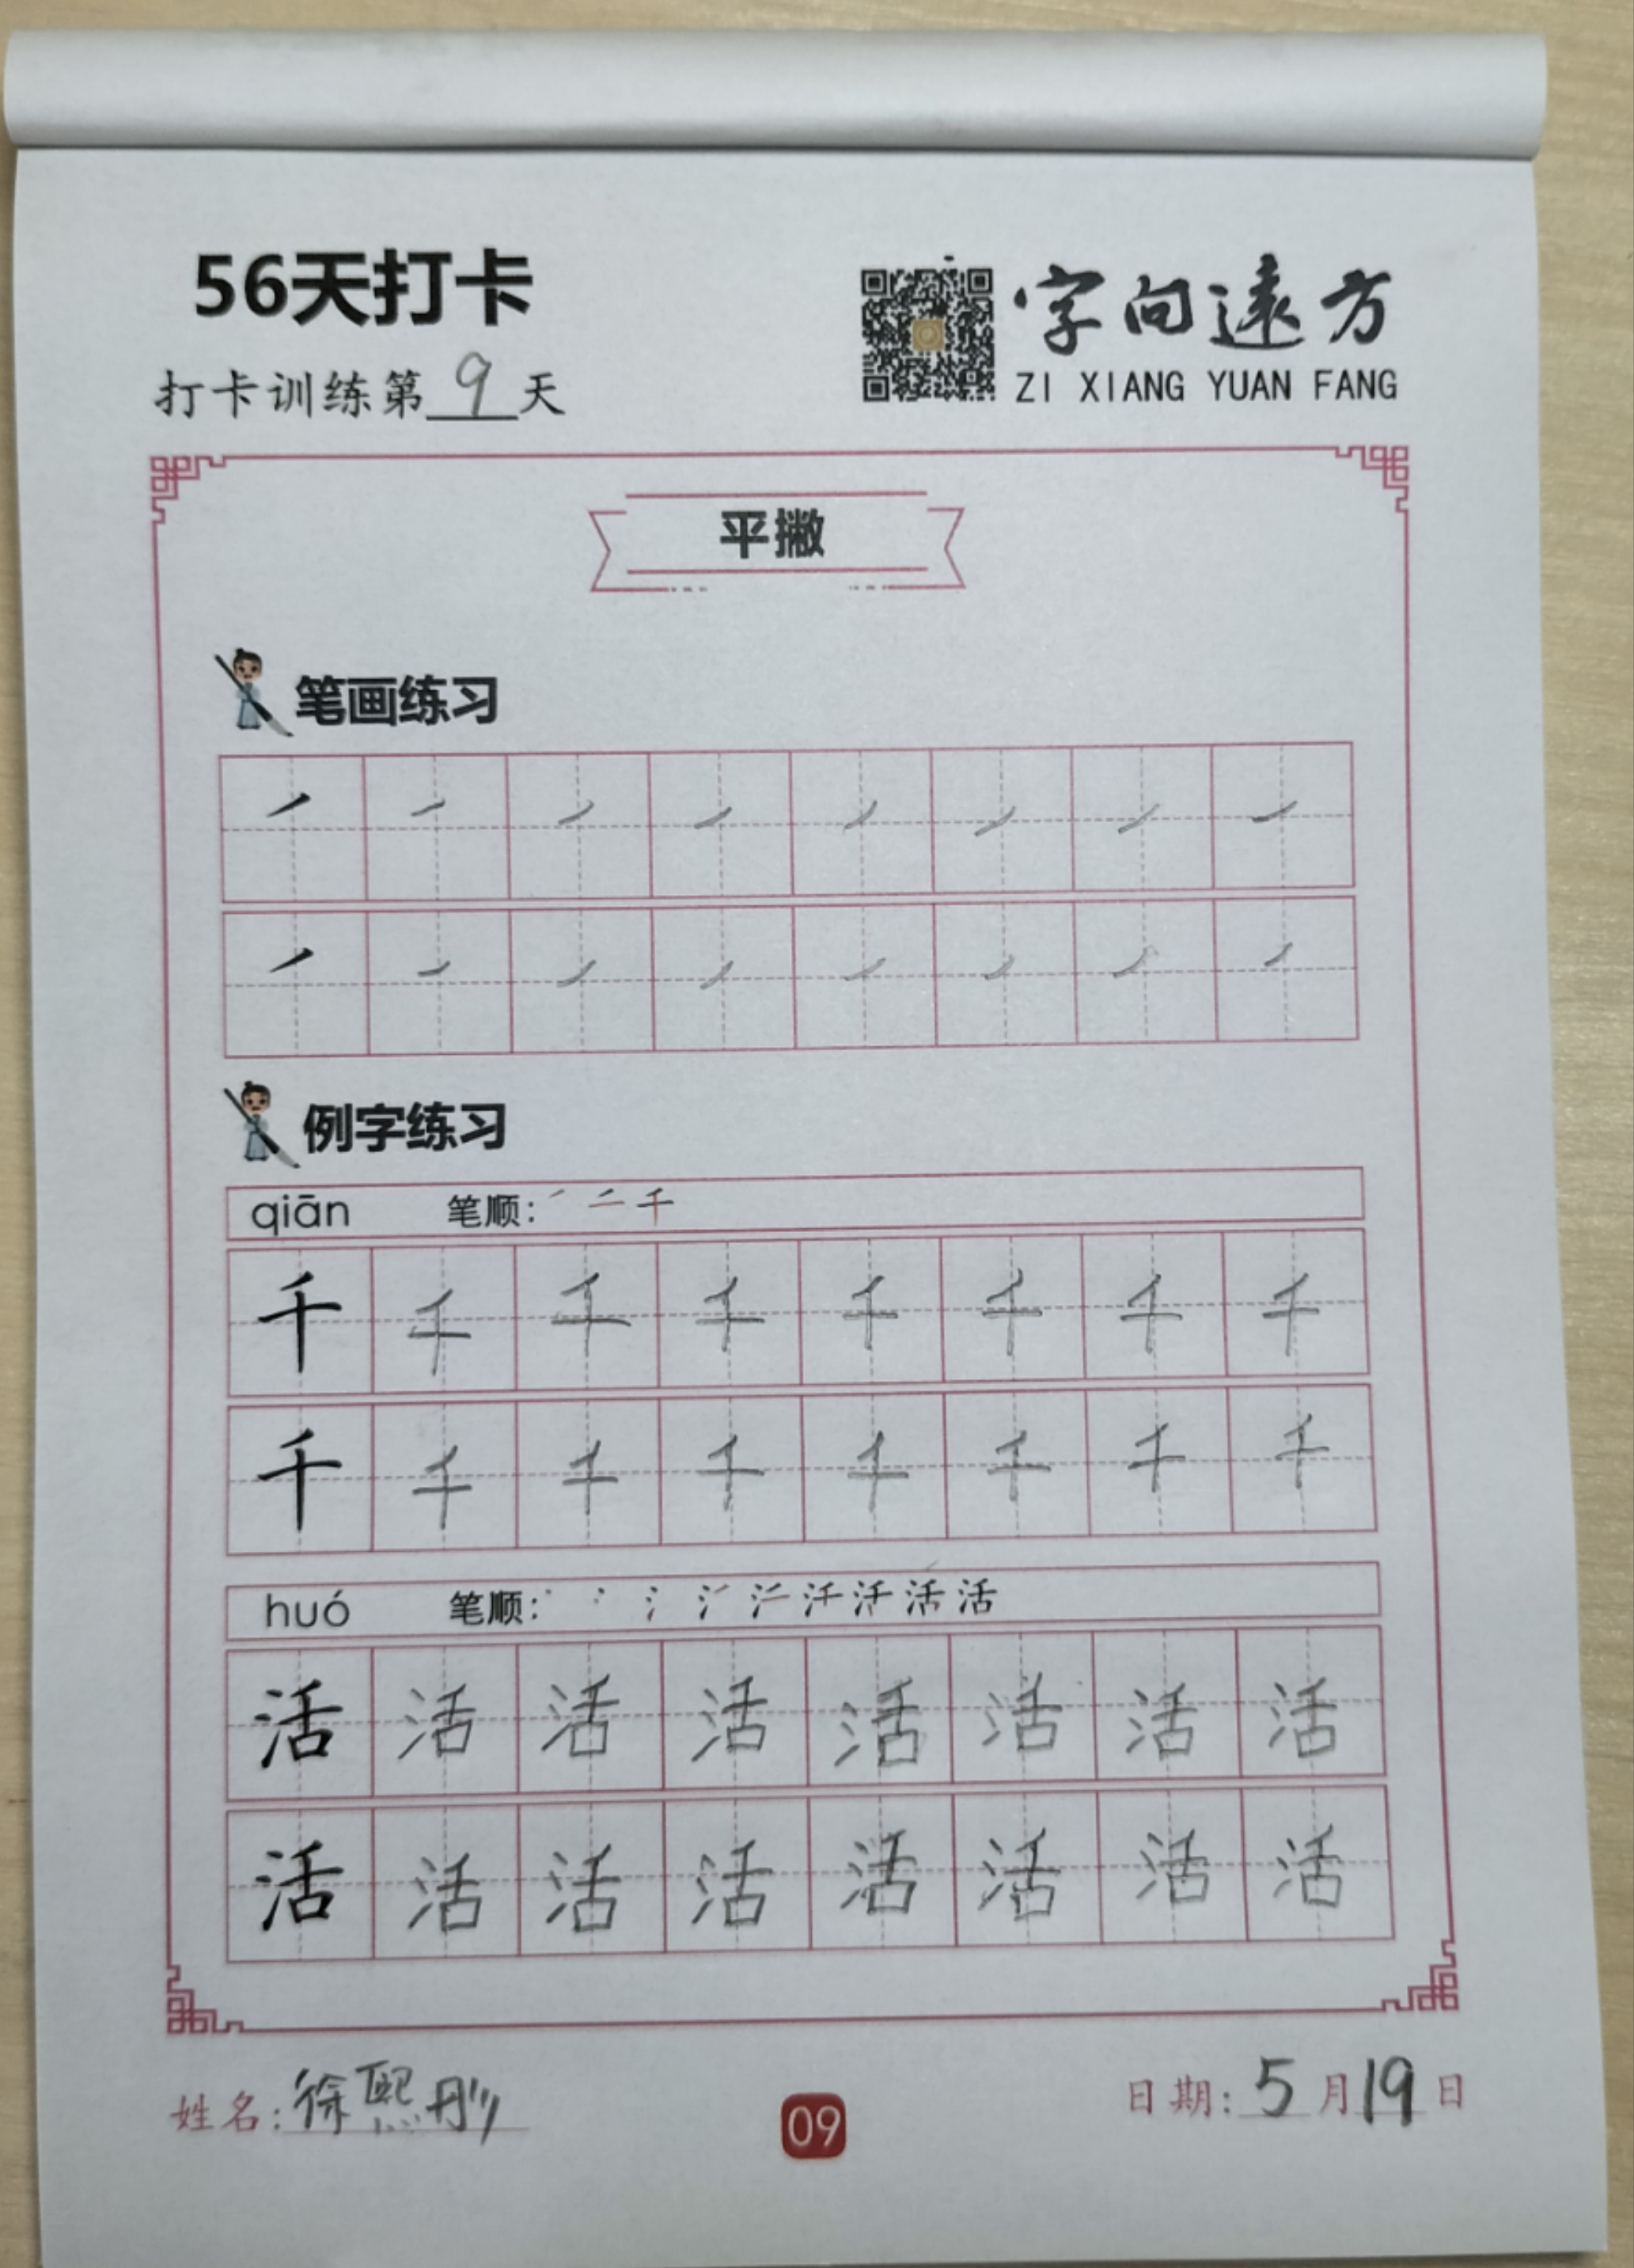 56天打卡
字向遠方
打卡训练第9天
ZI XIANG YUAN FANG
平撇
笔画练习
例字练习
qiān 笔顺: 丿 二 千
千 千 千 千 千 千 千 千
千 千 千 千 千 千 千 千
huó 笔顺: 活 活
活 活 活 活 活 活 活 活
活 活 活 活 活 活 活 活
姓名: 徐熙彤
09
日期: 5月19日